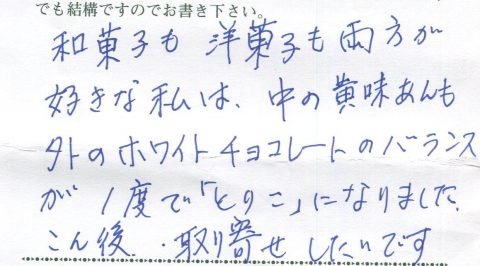 でも結構ですのでお書き下さい。
和菓子も 洋菓子も両方が
好きな私は、中の黄味あんも
外のホワイトチョコレートのバランス
が 1度で「とりこ」になりました。
こん後、・取り寄せしたいです